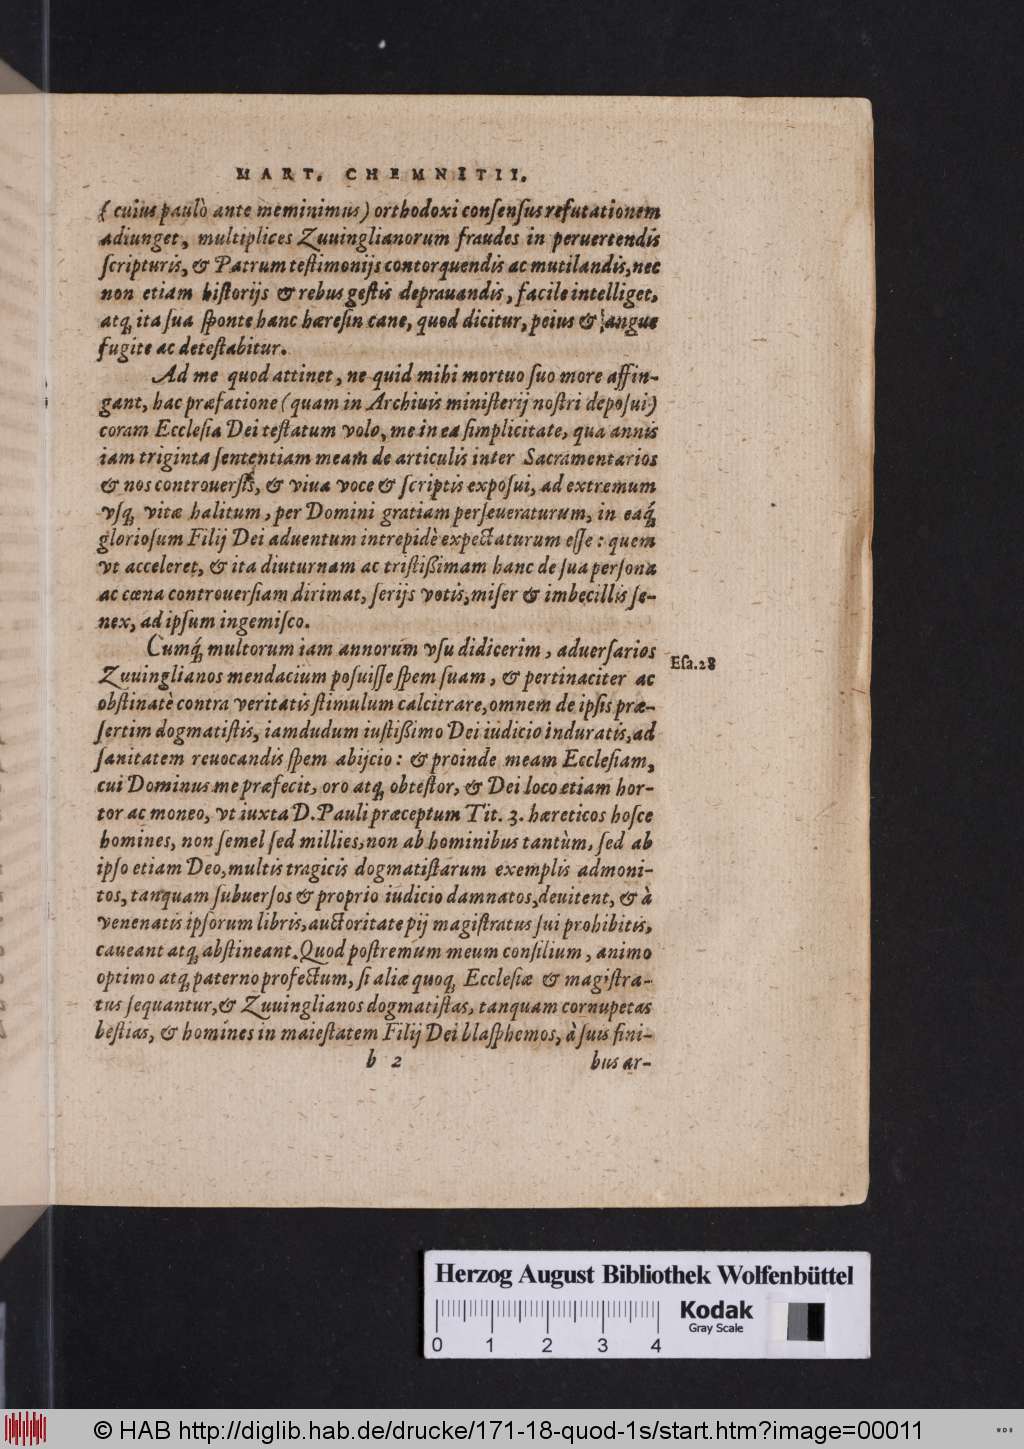 MART. CHEMNITII.
(cuius paulò ante meminimus) orthodoxi conſenſus refutationem
adiunget, multiplices Zuuinglianorum fraudes in peruertendis
ſcripturis, & Patrum teſtimonijs contorquendis ac mutilandis, nec
non etiam hiſtorijs & rebus geſtis deprauandis, facile intelliget,
atq́ ita ſua ſponte hanc hæreſin cane, quod dicitur, peius & angue
fugite ac deteſtabitur.
Ad me quod attinet, ne quid mihi mortuo ſuo more affin-
gant, hac præfatione (quam in Archiuis miniſterij noſtri depoſui)
coram Eccleſia Dei teſtatum volo, me in ea ſimplicitate, qua annis
iam triginta ſententiam meam de articulis inter Sacramentarios
& nos controuerſis, & viua voce & ſcriptis expoſui, ad extremum
vſq́ vitæ halitum, per Domini gratiam perſeueraturum, in eaq́
glorioſum Filij Dei aduentum intrepidè expectaturum eſſe: quem
vt acceleret, & ita diuturnam ac triſtißimam hanc de ſua perſona
ac cœna controuerſiam dirimat, ſerijs votis, miſer & imbecillis ſe-
nex, ad ipſum ingemiſco.
Cumq́ multorum iam annorum vſu didicerim, aduerſarios
Eſa.28
Zuuinglianos mendacium poſuiſſe ſpem ſuam, & pertinaciter ac
obſtinatè contra veritatis ſtimulum calcitrare, omnem de ipſis præ-
ſertim dogmatiſtis, iamdudum iuſtißimo Dei iudicio induratis, ad
ſanitatem reuocandis ſpem abijcio: & proinde meam Eccleſiam,
cui Dominus me præfecit, oro atq́ obteſtor, & Dei loco etiam hor-
tor ac moneo, vt iuxta D. Pauli præceptum Tit. 3. hæreticos hoſce
homines, non ſemel ſed millies, non ab hominibus tantùm, ſed ab
ipſo etiam Deo, multis tragicis dogmatiſtarum exemplis admoni-
tos, tanquam ſubuerſos & proprio iudicio damnatos, deuitent, & à
venenatis ipſorum libris, auctoritate pij magiſtratus ſui prohibitis,
caueant atq́ abſtineant. Quod poſtremum meum conſilium, animo
optimo atq́ paterno profectum, ſi aliæ quoq́ Eccleſiæ & magiſtra-
tus ſequantur, & Zuuinglianos dogmatiſtas, tanquam cornupetas
beſtias, & homines in maieſtatem Filij Dei blaſphemos, à ſuis fini-
b 2 bus ar-
Herzog August Bibliothek Wolfenbüttel
Kodak
Gray Scale
0 1 2 3 4
© HAB http://diglib.hab.de/drucke/171-18-quod-1s/start.htm?image=00011